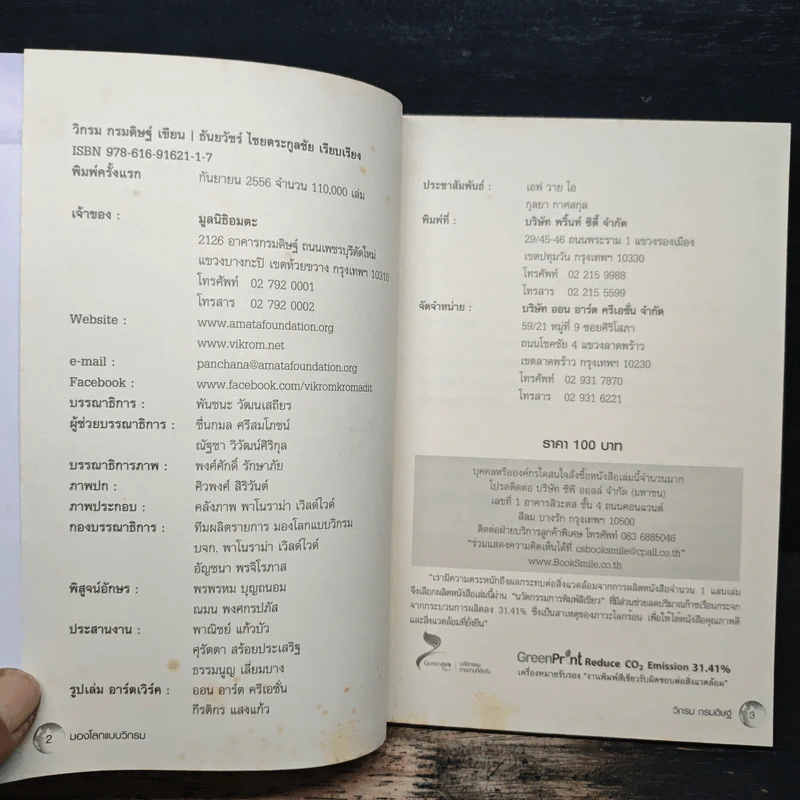 วิกรม กรมดิษฐ์ เขียน | ธันยวัชร์ ไชยตระกูลชัย เรียบเรียง
ISBN 978-616-91621-1-7
พิมพ์ครั้งแรก กันยายน 2556 จำนวน 110,000 เล่ม
เจ้าของ : มูลนิธิอมตะ
2126 อาคารกรมดิษฐ์ ถนนเพชรบุรีตัดใหม่
แขวงบางกะปิ เขตห้วยขวาง กรุงเทพฯ 10310
โทรศัพท์ 02 792 0001
โทรสาร 02 792 0002
Website : www.amatafoundation.org
www.vikrom.net
e-mail : panchana@amatafoundation.org
Facebook : www.facebook.com/vikromkromadit
บรรณาธิการ : พันชนะ วัฒนเสถียร
ผู้ช่วยบรรณาธิการ : ชื่นกมล ศรีสมโภชน์
ณัฐชา วิวัฒน์ศิริกุล
บรรณาธิการภาพ : พงศ์ศักดิ์ รักษาภัย
ภาพปก : ศิวพงศ์ สิริวันต์
ภาพประกอบ : คลังภาพ พาโนราม่า เวิลด์ไวด์
กองบรรณาธิการ : ทีมผลิตรายการ มองโลกแบบวิกรม
บจก. พาโนราม่า เวิลด์ไวด์
อัญชนา พรจิโรภาส
พิสูจน์อักษร : พรพรหม บุญถนอม
ณมน พงศกรปภัส
ประสานงาน : พาณิชย์ แก้วบัว
ศุรัตตา สร้อยประเสริฐ
ธรรมนูญ เลี่ยมบาง
รูปเล่ม อาร์ตเวิร์ค : ออน อาร์ต ครีเอชั่น
กีรติกร แสงแก้ว
2 มองโลกแบบวิกรม
ประชาสัมพันธ์ : เอฟ วาย ไอ
กุลยา กาศสกุล
พิมพ์ที่ : บริษัท พริ้นท์ ซิตี้ จำกัด
29/45-46 ถนนพระราม 1 แขวงรองเมือง
เขตปทุมวัน กรุงเทพฯ 10330
โทรศัพท์ 02 215 9988
โทรสาร 02 215 5599
จัดจำหน่าย : บริษัท ออน อาร์ต ครีเอชั่น จำกัด
59/21 หมู่ที่ 9 ซอยศิริโสภา
ถนนโชคชัย 4 แขวงลาดพร้าว
เขตลาดพร้าว กรุงเทพฯ 10230
โทรศัพท์ 02 931 7870
โทรสาร 02 931 6221
ราคา 100 บาท
บุคคลหรือองค์กรใดสนใจสั่งซื้อหนังสือเล่มนี้จำนวนมาก
โปรดติดต่อ บริษัท ซีพี ออลล์ จำกัด (มหาชน)
เลขที่ 1 อาคารสิวะดล ชั้น 4 ถนนคอนแวนต์
สีลม บางรัก กรุงเทพฯ 10500
ติดต่อฝ่ายบริการลูกค้าพิเศษ โทรศัพท์ 083 6885046
"ร่วมแสดงความคิดเห็นได้ที่ csbooksmile@cpall.co.th"
www.BookSmile.co.th
"เรามีความตระหนักถึงผลกระทบต่อสิ่งแวดล้อมจากการผลิตหนังสือจำนวน 1 แสนเล่ม
จึงเลือกผลิตหนังสือเล่มนี้ผ่าน "นวัตกรรมการพิมพ์สีเขียว" ที่มีส่วนช่วยลดปริมาณก๊าซเรือนกระจก
จากกระบวนการผลิตลง 31.41% ซึ่งเป็นสาเหตุของภาวะโลกร้อน เพื่อให้ได้หนังสือคุณภาพดี
และสิ่งแวดล้อมที่ยั่งยืน"
GreenPrint Reduce CO2 Emission 31.41%
เครื่องหมายรับรอง "งานพิมพ์สีเขียวรับผิดชอบต่อสิ่งแวดล้อม"
วิกรม กรมดิษฐ์ 3